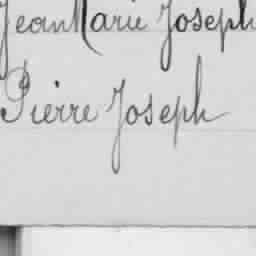 Jean Marie Joseph
Pierre Joseph